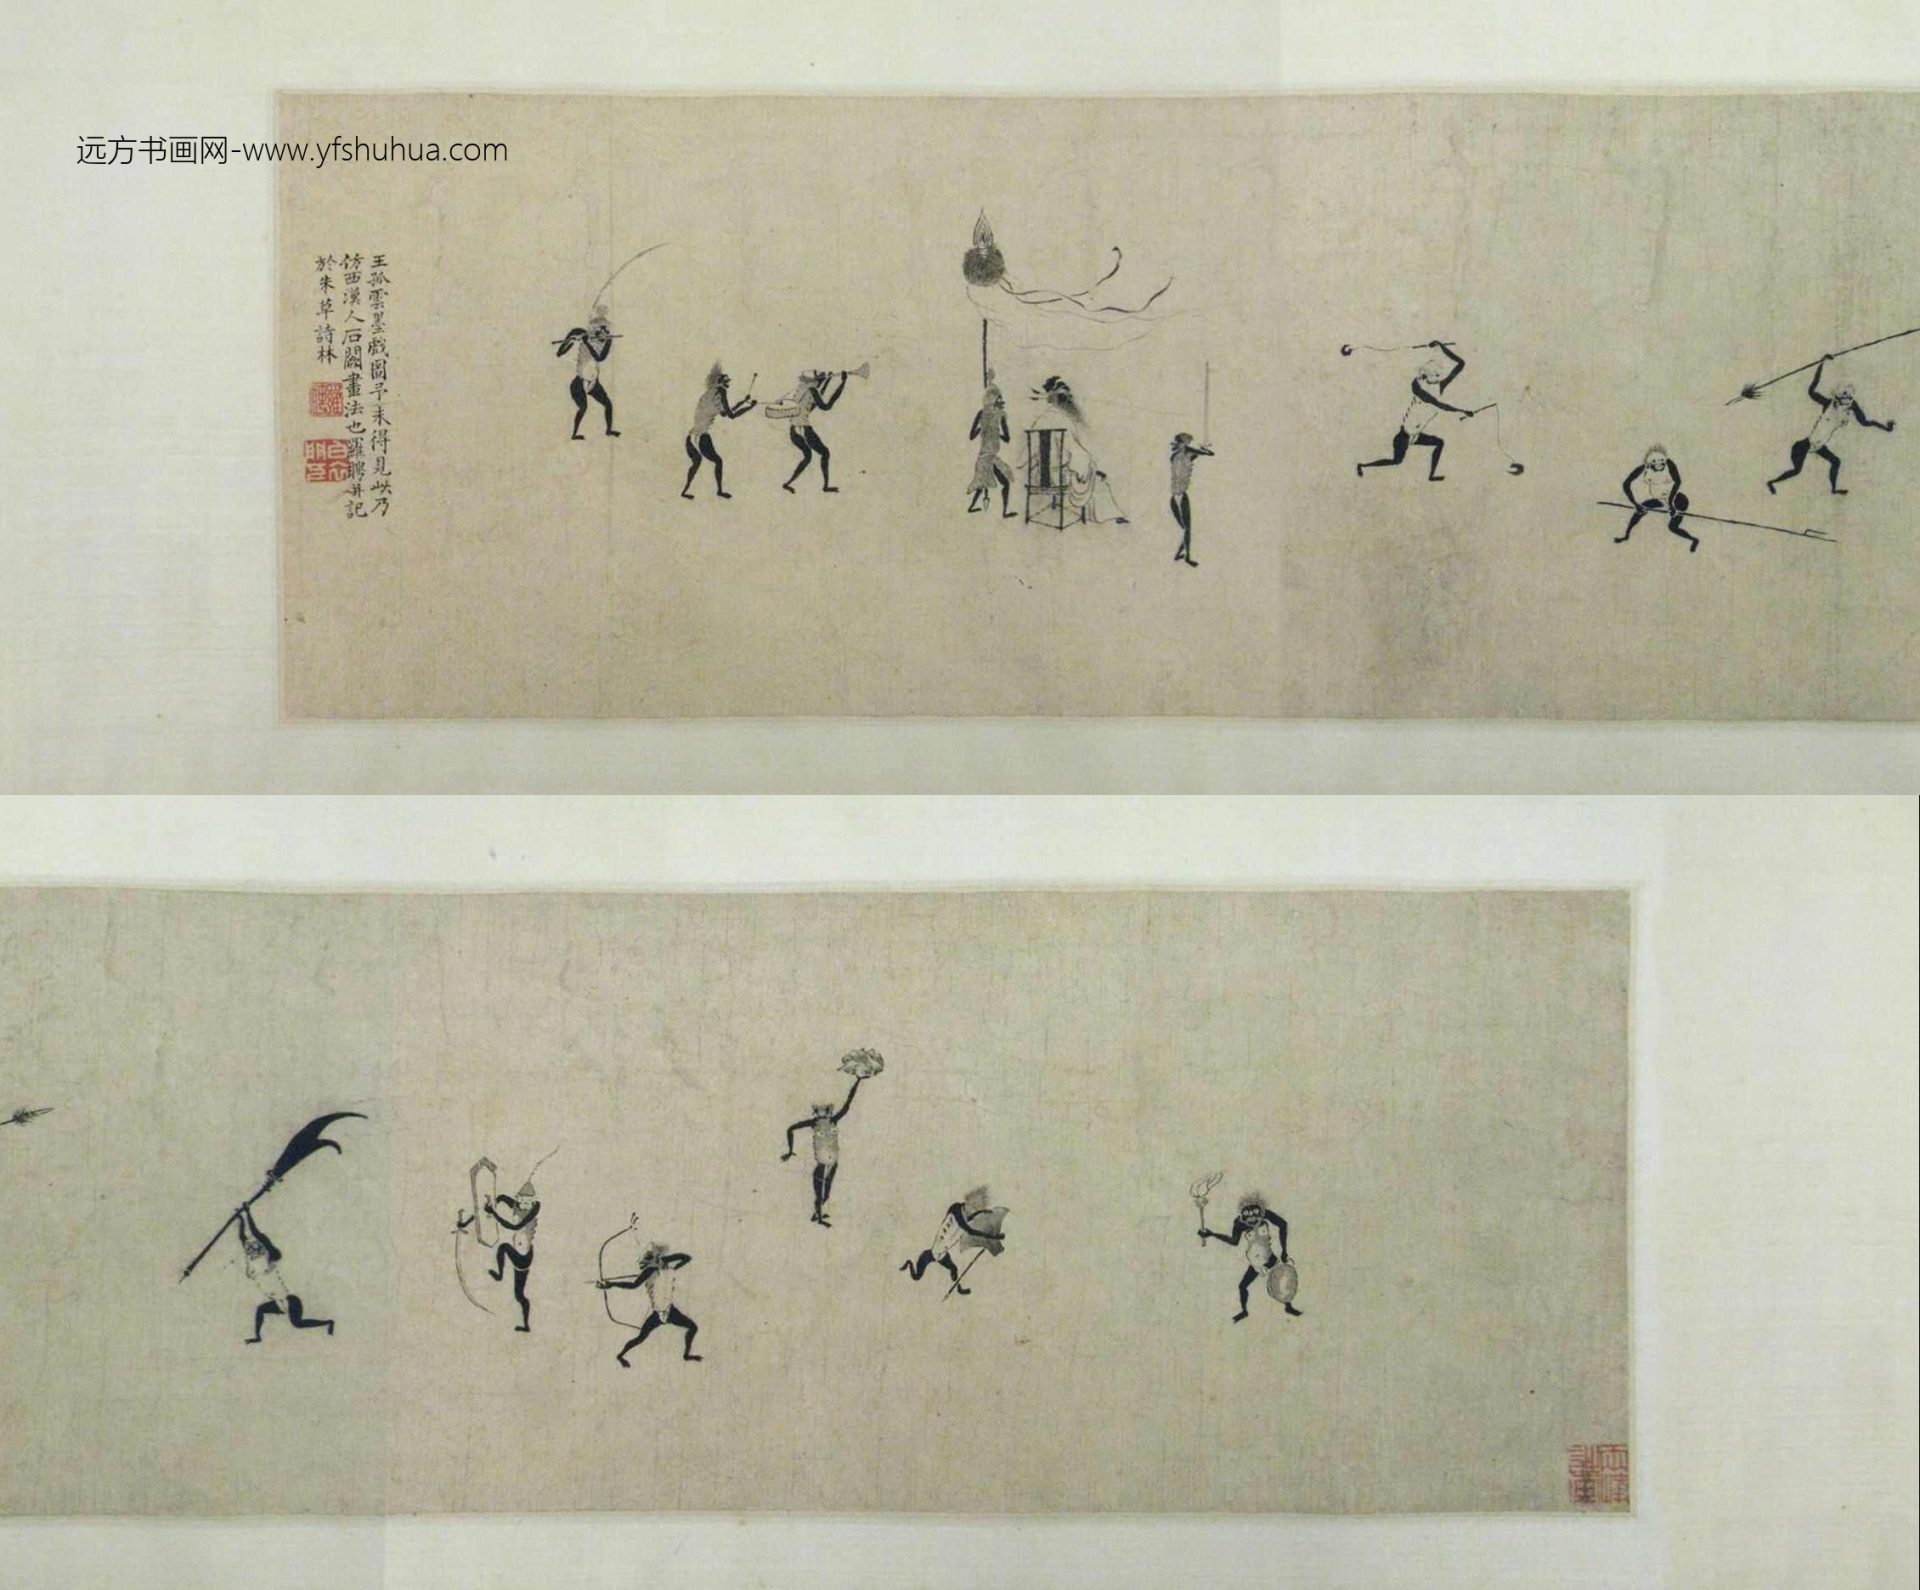 远方书画网-www.yfshuhua.com
王孤雲墨戲圖予未得見此乃
仿西漢人石闕畫法也羅聘并記
於朱草詩林